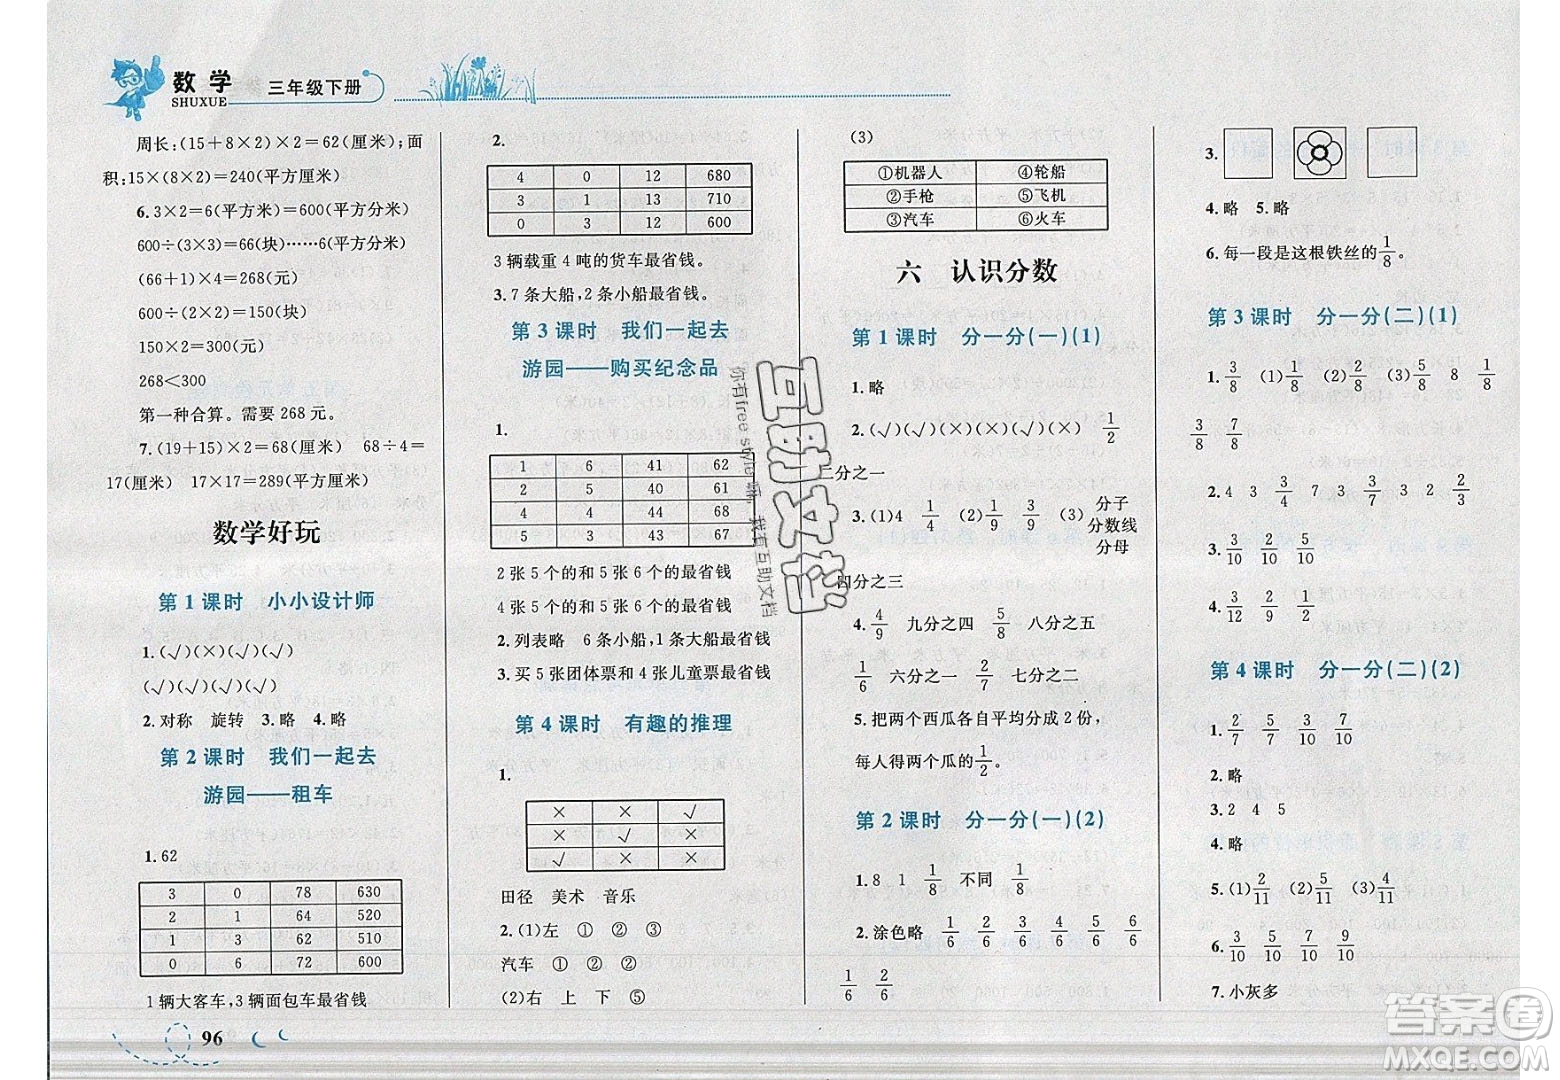 数学
SHUXUE
三年级下册
周长:(15+8×2)×2=62(厘米);面
积:15×(8×2)=240(平方厘米)
6.3×2=6(平方米)=600(平方分米)
600÷(3×3)=66(块)……6(平方分米)
(66+1)×4=268(元)
600÷(2×2)=150(块)
150×2=300(元)
268<300
第一种合算。需要 268 元。
7.(19+15)×2=68(厘米) 68÷4=
17(厘米) 17×17=289(平方厘米)
数学好玩
第 1 课时 小小设计师
1.(√)(×)(√)(√)
(√)(√)(√)(√)
2.对称 旋转 3.略 4.略
第 2 课时 我们一起去
游园——租车
1.62
3 0 78 630
2 1 64 520
1 3 62 510
0 6 72 600
1 辆大客车,3 辆面包车最省钱
96
2.
4 0 12 680
3 1 13 710
0 3 12 600
3 辆载重 4 吨的货车最省钱。
3.7 条大船,2 条小船最省钱。
第 3 课时 我们一起去
游园——购买纪念品
1.
1 6 41 62
2 5 42 64
4 4 44 68
5 3 43 67
2 张 5 个的和 5 张 6 个的最省钱
4 张 5 个的和 5 张 6 个的最省钱
2.列表略 6 条小船,1 条大船最省钱
3.买 5 张团体票和 4 张儿童票最省钱
第 4 课时 有趣的推理
1.
× × √
× √ ×
√ × ×
田径 美术 音乐
2.(1)左 ① ② ③
汽车 ① ② ②
(2)右 上 下 ⑤
(3)
①机器人 ④轮船
②手枪 ⑤飞机
③汽车 ⑥火车
六 认识分数
第 1 课时 分一分(一)(1)
1.略
2.(√)(×)(×)(√)(×) 1/2
二分之一
3.(1)4 1/4 (2)1/9 3/9 (3) 分子 分数线 分母
四分之三
4. 4/9 九分之四 5/8 八分之五
1/6 六分之一 2/7 七分之二
5.把两个西瓜各自平均分成 2 份,
每人得两个瓜的1/2。
第 2 课时 分一分(一)(2)
1.8 1 1/8 不同 1/8
2.涂色略 1/6 1/6 2/6 3/6 2/6 1/6
1/6 2/6
3.
4.略 5.略
6.每一段是这根铁丝的1/8。
第 3 课时 分一分(二)(1)
1. 3/8 (1)1/8 (2)3/8 4/8 1/8
3/8 7/8
2.4 3 3/4 7 3 3/7 8 2 2/8
3. 3/10 2/10 5/10
4. 3/12 4/9 1/2
第 4 课时 分一分(二)(2)
1. 2/7 5/7 3/10 7/10
2.略
3.2 4 5
4.略
5.(1)2/11 (2)5/11 (3)4/11
6. 3/10 2/10 5/10
7.小灰多
你有free style嘛,我有互助文档
互助文档
答案圈
MXQE.COM